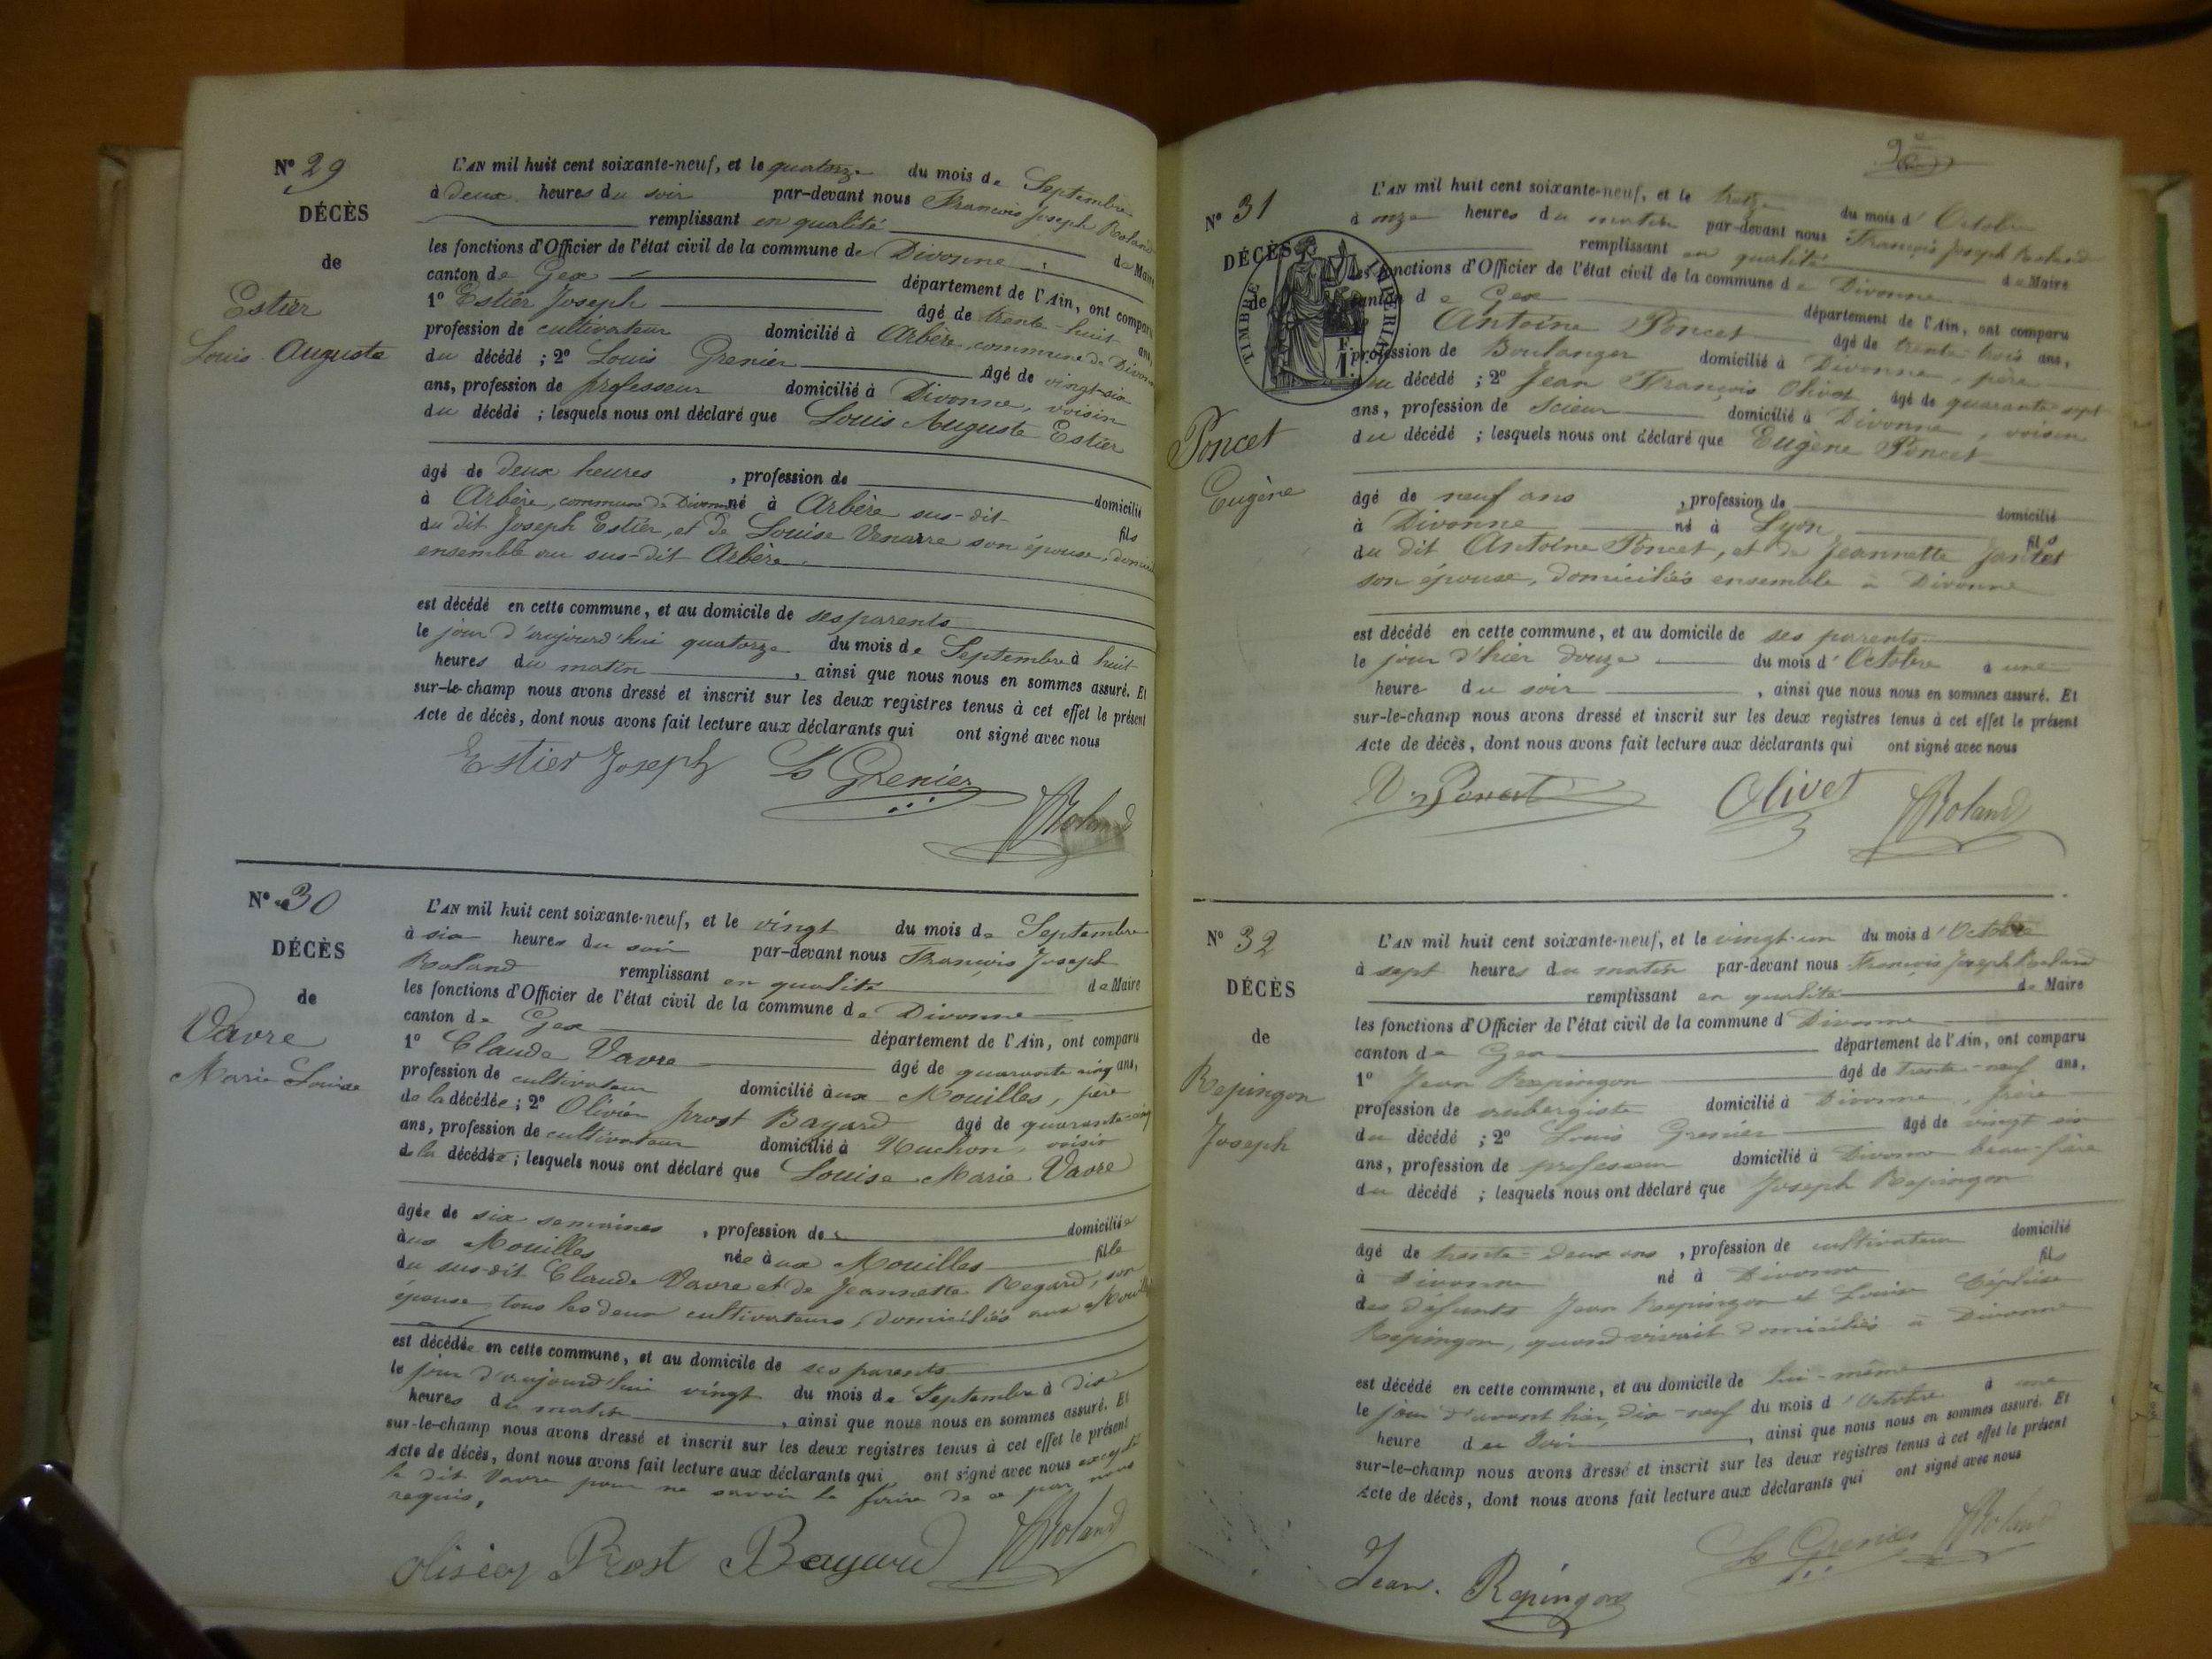 Nº 29
DÉCÈS
de
Estier
Louis Auguste
L'AN mil huit cent soixante-neuf, et le quatorze du mois de Septembre
à deux heures du soir par-devant nous François Joseph Roland
remplissant en qualité de Maire
les fonctions d'Officier de l'état civil de la commune de Divonne
canton de Gex département de l'Ain, ont comparu
1º Estier Joseph âgé de trente-huit ans,
profession de cultivateur domicilié à Arbère, commune de Divonne
du décédé ; 2º Louis Grenier âgé de vingt-six
ans, profession de professeur domicilié à Divonne, voisin
du décédé ; lesquels nous ont déclaré que Louis Auguste Estier
âgé de deux heures , profession de domicilié
à Arbère, commune de Divonne né à Arbère sus-dit fils
du dit Joseph Estier, et de Louise Venarre son épouse,
ensemble au sus-dit Arbère.
est décédé en cette commune, et au domicile de ses parents
le jour d'aujourd'hui quatorze du mois de Septembre à huit
heures du matin , ainsi que nous nous en sommes assuré. Et
sur-le-champ nous avons dressé et inscrit sur les deux registres tenus à cet effet le présent
Acte de décès, dont nous avons fait lecture aux déclarants qui ont signé avec nous
Estier Joseph Ls Grenier
Roland
Nº 30
DÉCÈS
de
Vavre
Marie Louise
L'AN mil huit cent soixante-neuf, et le vingt du mois de Septembre
à six heures du soir par-devant nous François Joseph
Roland remplissant en qualité de Maire
les fonctions d'Officier de l'état civil de la commune de Divonne
canton de Gex département de l'Ain, ont comparu
1º Claude Vavre âgé de quarante cinq ans,
profession de cultivateur domicilié aux Mouilles, père
de la décédée ; 2º Olivier Prost Bayard âgé de quarante-cinq
ans, profession de cultivateur domicilié à voisin
de la décédée ; lesquels nous ont déclaré que Louise Marie Vavre
âgée de six semaines , profession de domiciliée
aux Mouilles née aux Mouilles fille
du sus-dit Claude Vavre et de Jeannette Regard, son
épouse, tous les deux cultivateurs, domiciliés aux Mouilles
est décédée en cette commune, et au domicile de ses parents
le jour d'aujourd'hui vingt du mois de Septembre à dix
heures du matin , ainsi que nous nous en sommes assuré. Et
sur-le-champ nous avons dressé et inscrit sur les deux registres tenus à cet effet le présent
Acte de décès, dont nous avons fait lecture aux déclarants qui ont signé avec nous excepté
le dit Vavre pour ne savoir le faire de ce par nous
requis.
Olivier Prost Bayard Roland
Nº 31
DÉCÈS
de
TIMBRE IMPÉRIAL
Poncet
Eugène
L'AN mil huit cent soixante-neuf, et le treize du mois d'Octobre
à onze heures du matin par-devant nous François Joseph Roland
remplissant en qualité de Maire
les fonctions d'Officier de l'état civil de la commune de Divonne
canton de Gex département de l'Ain, ont comparu
Antoine Poncet âgé de trente trois ans,
profession de Boulanger domicilié à Divonne, père
du décédé ; 2º Jean François Olivet âgé de quarante-sept
ans, profession de scieur domicilié à Divonne, voisin
du décédé ; lesquels nous ont déclaré que Eugène Poncet
âgé de neuf ans , profession de domicilié
à Divonne né à Lyon fils
du dit Antoine Poncet, et de Jeannette Jantet
son épouse, domiciliés ensemble à Divonne
est décédé en cette commune, et au domicile de ses parents
le jour d'hier douze du mois d'Octobre à une
heure du soir , ainsi que nous nous en sommes assuré. Et
sur-le-champ nous avons dressé et inscrit sur les deux registres tenus à cet effet le présent
Acte de décès, dont nous avons fait lecture aux déclarants qui ont signé avec nous
Poncet Olivet Roland
Nº 32
DÉCÈS
de
Repingon
Joseph
L'AN mil huit cent soixante-neuf, et le vingt-un du mois d'Octobre
à sept heures du matin par-devant nous François Joseph Roland
remplissant en qualité de Maire
les fonctions d'Officier de l'état civil de la commune d Divonne
canton de Gex département de l'Ain, ont comparu
1º Jean Repingon âgé de trente-neuf ans,
profession de aubergiste domicilié à Divonne, frère
du décédé ; 2º Louis Grenier âgé de vingt six
ans, profession de professeur domicilié à Divonne beau-frère
du décédé ; lesquels nous ont déclaré que Joseph Repingon
âgé de trente-deux ans , profession de cultivateur domicilié
à Divonne né à Divonne fils
des défunts Jean Repingon et Louise
Repingon, quand vivait domiciliés à Divonne
est décédé en cette commune, et au domicile de lui-même
le jour d'avant hier, dix-neuf du mois d'Octobre à une
heure du soir , ainsi que nous nous en sommes assuré. Et
sur-le-champ nous avons dressé et inscrit sur les deux registres tenus à cet effet le présent
Acte de décès, dont nous avons fait lecture aux déclarants qui ont signé avec nous
Jean. Repingon Ls Grenier Roland